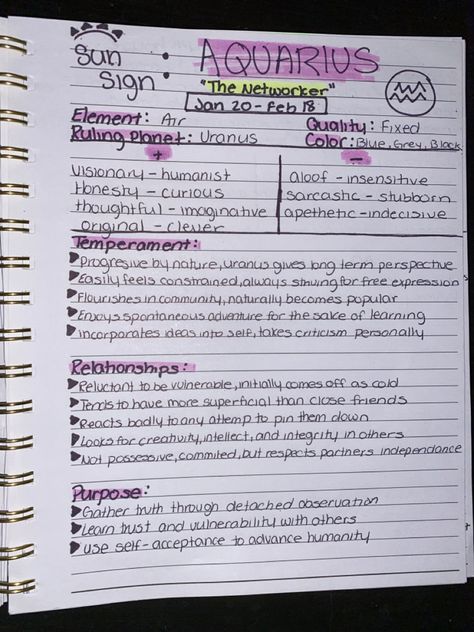 Sun Sign : AQUARIUS
"The Networker"
Jan 20 - Feb 18
Element: Air
Quality: Fixed
Ruling Planet: Uranus
Color: Blue, Grey, Black
+
-
Visionary - humanist
Honesty - curious
thoughtful - imaginative
original - clever
aloof - insensitive
sarcastic - stubborn
apethetic - indecisive
Temperament:
Progresive by nature, uranus gives long term perspective
Easily feels constrained, always striving for free expression
Flourishes in community, naturally becomes popular
Enjoys spontaneous adventure for the sake of learning
incorporates ideas into self, takes criticism personally
Relationships:
Reluctant to be vulnerable, initially comes off as cold
Tends to have more superficial than close friends
Reacts badly to any attemp to pin them down
Looks for creativity, intellect, and integrity in others
Not possessive, commited, but respects partners independance
Purpose:
Gather truth through detached observation
Learn trust and vulnerability with others
use self-acceptance to advance humanity